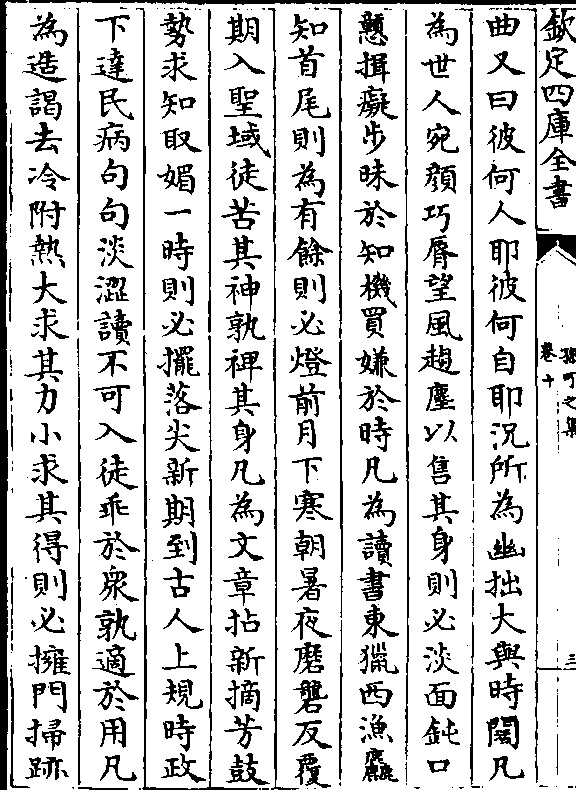 欽定四庫全書
孫可之集
卷十
三
曲又曰彼何人耶彼何自耶況所為幽拙大與時闊凡
為世人宛顔巧脣望風趨塵以售其身則必淡面鈍口
戇揖癡步昧於知機買嫌於時凡為讀書東獵西漁麤
知首尾則為有餘則必燈前月下寒朝暑夜磨礱反覆
期入聖域徒苦其神孰裨其身凡為文章拈新摘芳鼓
勢求知取媚一時則必擺落尖新期到古人上規時政
下達民病句句淡澀讀不可入徒乖於衆孰適於用凡
為造謁去冷附熱大求其力小求其得則必擁門掃跡